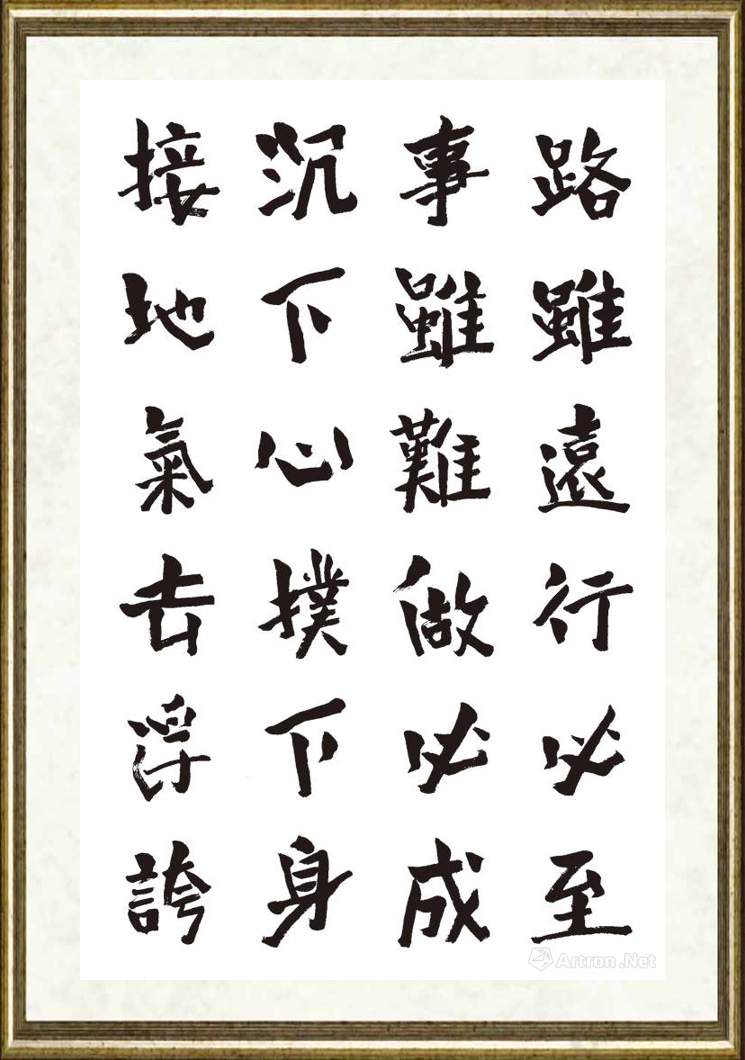 路雖遠行必至
事雖難做必成
沉下心撲下身
接地氣去浮誇
Artron.Net